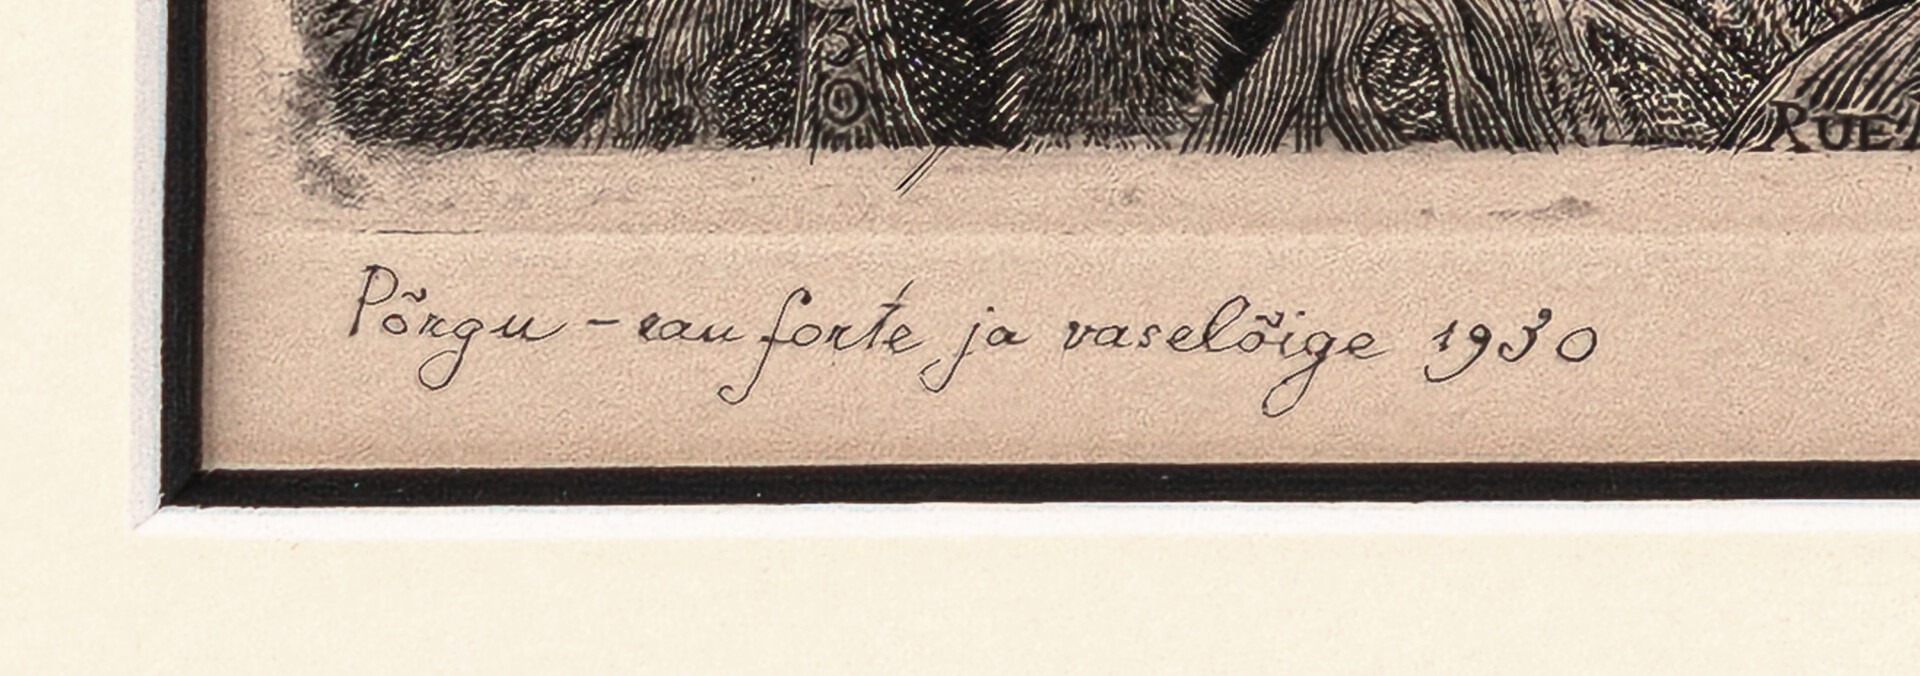 30
RUE
Põrgu - eau forte ja vaselõige 1930